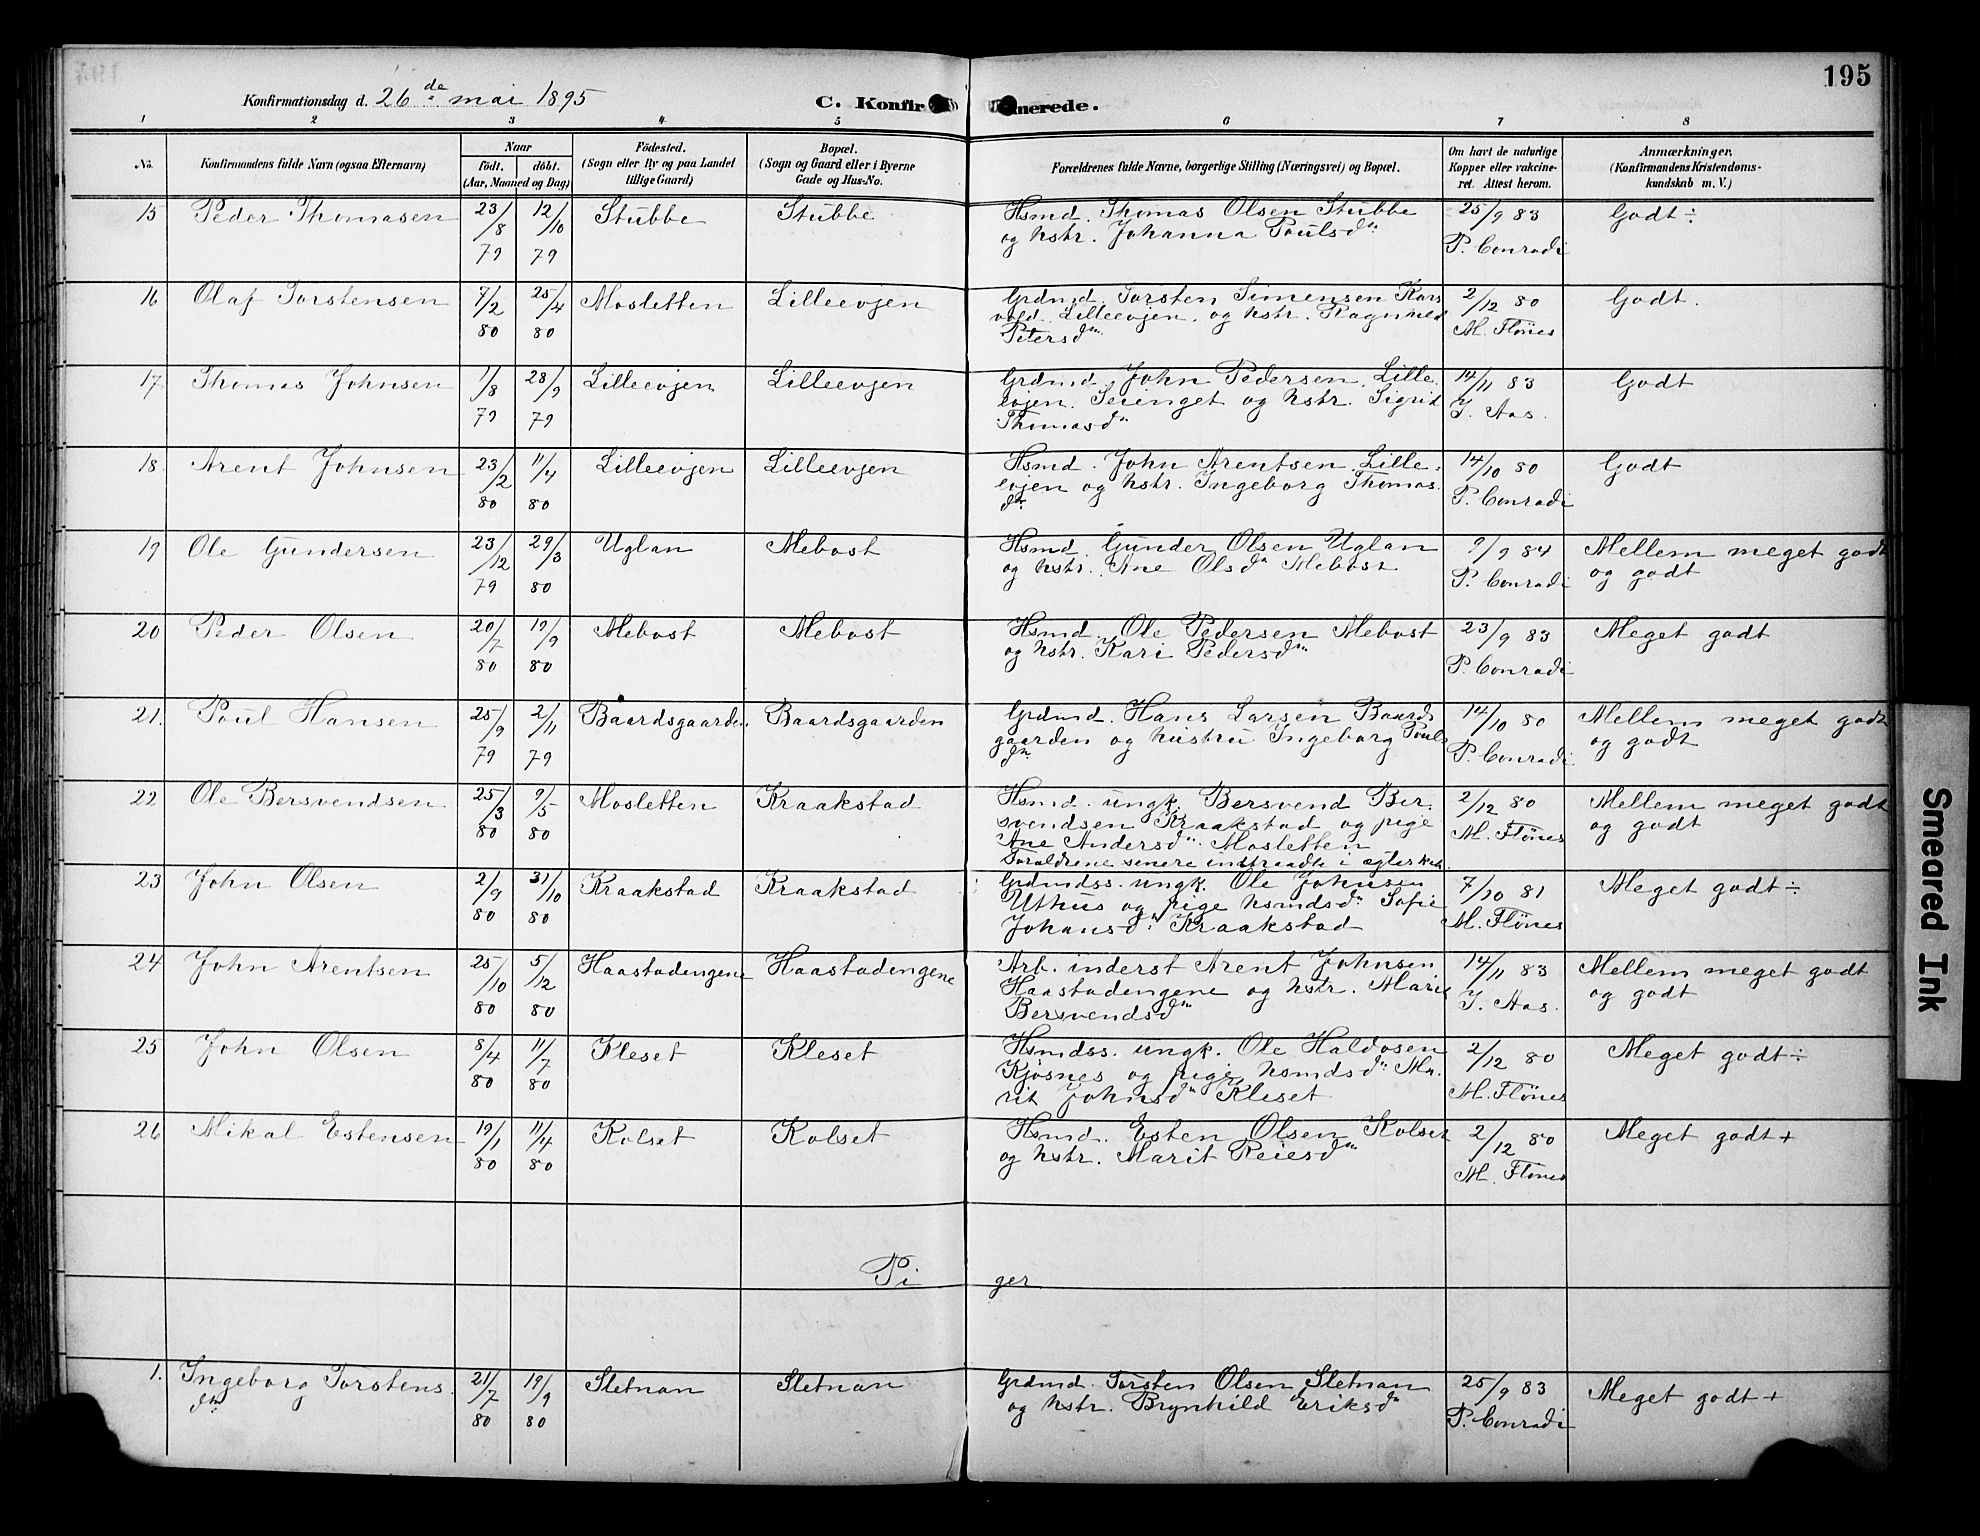 195
Konfirmationsdag d. 26de mai 1895
C. Konfir
merede.
1 2 3 4 5 6 7 8
No.
Konfirmandens fulde Navn (ogsaa Efternavn)
Naar
födt. döbt.
(Aar, Maaned og Dag)
Födested.
(Sogn eller By og paa Landet
tillige Gaard)
Bopæl.
(Sogn og Gaard eller i Byerne
Gade og Hus-No.
Forældrenes fulde Navne, borgerlige Stilling (Næringsvei) og Bopæl.
Om havt de naturlige
Kopper eller vakcine-
ret. Attest herom.
Anmærkninger.
(Konfirmandens Kristendoms-
kundskab m. V.)
15 Peder Thomasen 23/8 79 12/10 79 Stubbe Stubbe
Hsmd. Thomas Olsen Stubbe
og hstr. Johanna Poulsdn
25/9 83
P. Conradi
Godt ÷
16 Olaf Torstensen 7/2 80 25/4 80 Mosletten Lilleevjen
Grdmd. Torsten Simensen Kors
vold. Lilleevjen. og hstr. Ragnhild
Petersdn
2/12 80
M. Flönes
Godt.
17. Thomas Johnsen 1/8 79 28/9 79 Lilleevjen Lilleevjen
Grdmd. John Pedersen. Lille.
evjen. og hstr. Sigrid
Thomasdn
14/11 83
J. Aas.
Godt
18. Arent Johnsen 23/2 80 11/4 80 Lilleevjen Lilleevjen
Hsmd. John Arentsen. Lille.
evjen og hstr. Ingeborg Thomas.
dn
14/10 80
P. Conradi
Godt
19 Ole Gundersen 23/12 79 29/3 80 Uglan Mebost
Hsmd. Gunder Olsen Uglan
og hstr. Ane Olsdn Mebost
9/9 84
P. Conradi
Mellem meget godt
og godt
20 Peder Olsen 20/7 80 19/9 80 Mebost Mebost
Hsmd. Ole Pedersen Mebost
og hstr. Kari Pedersdn
23/9 83
P. Conradi
Meget godt
21. Poul Hansen 25/9 79 2/11 79 Baardsgaarden Baardsgaarden
Grdmd. Hans Larsen Baards
gaarden og hustru Ingeborg Pouls
dn
14/10 80
P. Conradi
Mellem meget godt
og godt
22 Ole Bersvendsen 25/3 80 9/5 80 Mosletten Kraakstad
Hsmd. ungk. Bersvend Ber.
svendsen Kraakstad og pige
Ane Andersdn Mosletten
Forældrene senere indtraadte i ægtesk
2/12 80
M. Flönes
Mellem meget godt
og godt
23 John Olsen 2/9 80 31/10 80 Kraakstad Kraakstad
Grdmdss. ungk. Ole Johnsen
Uthus og pige hsmdsdn Sofie
Johansdn Kraakstad
7/10 81
M. Flönes
Meget godt ÷
24 John Arentsen 25/10 80 5/12 80 Haastadengene Haastadengene
Arb. inderst Arent Johnsen
Haastadengene og hstr. Marie
Bersvendsdn
14/11 83
J. Aas.
Mellem meget godt
og godt
25 John Olsen 8/4 80 11/7 80 Kleset Kleset
Hsmdss. ungk. Ole Haldosen
Kjösnes og pige hsmdsdn Ma.
rit Johnsdn Kleset
2/12 80
M. Flönes
Meget godt ÷
26 Mikal Estensen 19/1 80 11/4 80 Kolset Kolset
Hsmd. Esten Olsen Kolset
og hstr. Marit Reiesdn
2/12 80
M. Flönes
Meget godt +
Pi ger
1. Ingeborg Torstens. 21/7 80 19/9 80 Sletnan Sletnan
dn
Grdmd. Torsten Olsen Sletnan
og hstr. Brynhild Eriksdn
25/9 83
P. Conradi
Meget godt +
Smeared Ink